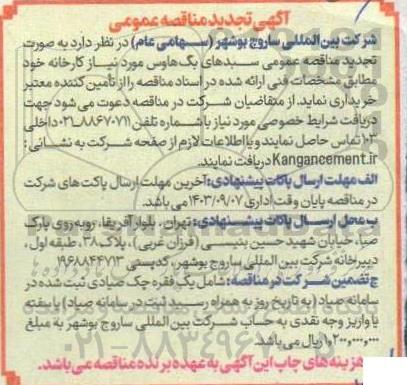 آگهی تجدید مناقصه عمومی
شرکت بین المللی ساروج بوشهر (سهامی عام) در نظر دارد به صورت
تجدید مناقصه عمومی سبدهای بگ هاوس مورد نیاز کارخانه خود
مطابق مشخصات فنی ارائه شده در اسناد مناقصه را از تأمین کننده معتبر
خریداری نماید. از متقاضیان شرکت در مناقصه دعوت می شود جهت
دریافت شرایط خصوصی مورد نیاز با شماره تلفن ۸۸۶۷۰۷۱۱-۰۲۱ داخلی
۱۰۳ تماس حاصل نمایند و یا اطلاعات لازم از صفحه شرکت به نشانی:
Kangancement.ir دریافت نمایند.
الف مهلت ارسال پاکات پیشنهادی: آخرین مهلت ارسال پاکت های شرکت
در مناقصه پایان وقت اداری ۱۴۰۳/۰۹/۰۷ می باشد.
ب محل ارسال پاکات پیشنهادی: تهران، بلوار آفریقا، روبه روی پارک
صبا، خیابان شهید حسین بنیسی (فرزان غربی)، پلاک ۳۸، طبقه اول،
دبیرخانه شرکت بین المللی ساروج بوشهر، کدپستی ۱۹۶۸۸۴۴۷۱۳
ج تضمین شرکت در مناقصه: شامل یک فقره چک صیادی ثبت شده در
سامانه صیاد (به تاریخ روز به همراه رسید ثبت در سامانه صیاد) یا سفته
یا واریز وجه نقدی به حساب شرکت بین المللی ساروج بوشهر به مبلغ
۱,۲۰۰,۰۰۰,۰۰۰ ریال می باشد.
هزینه های چاپ این آگهی به عهده برنده مناقصه می باشد.